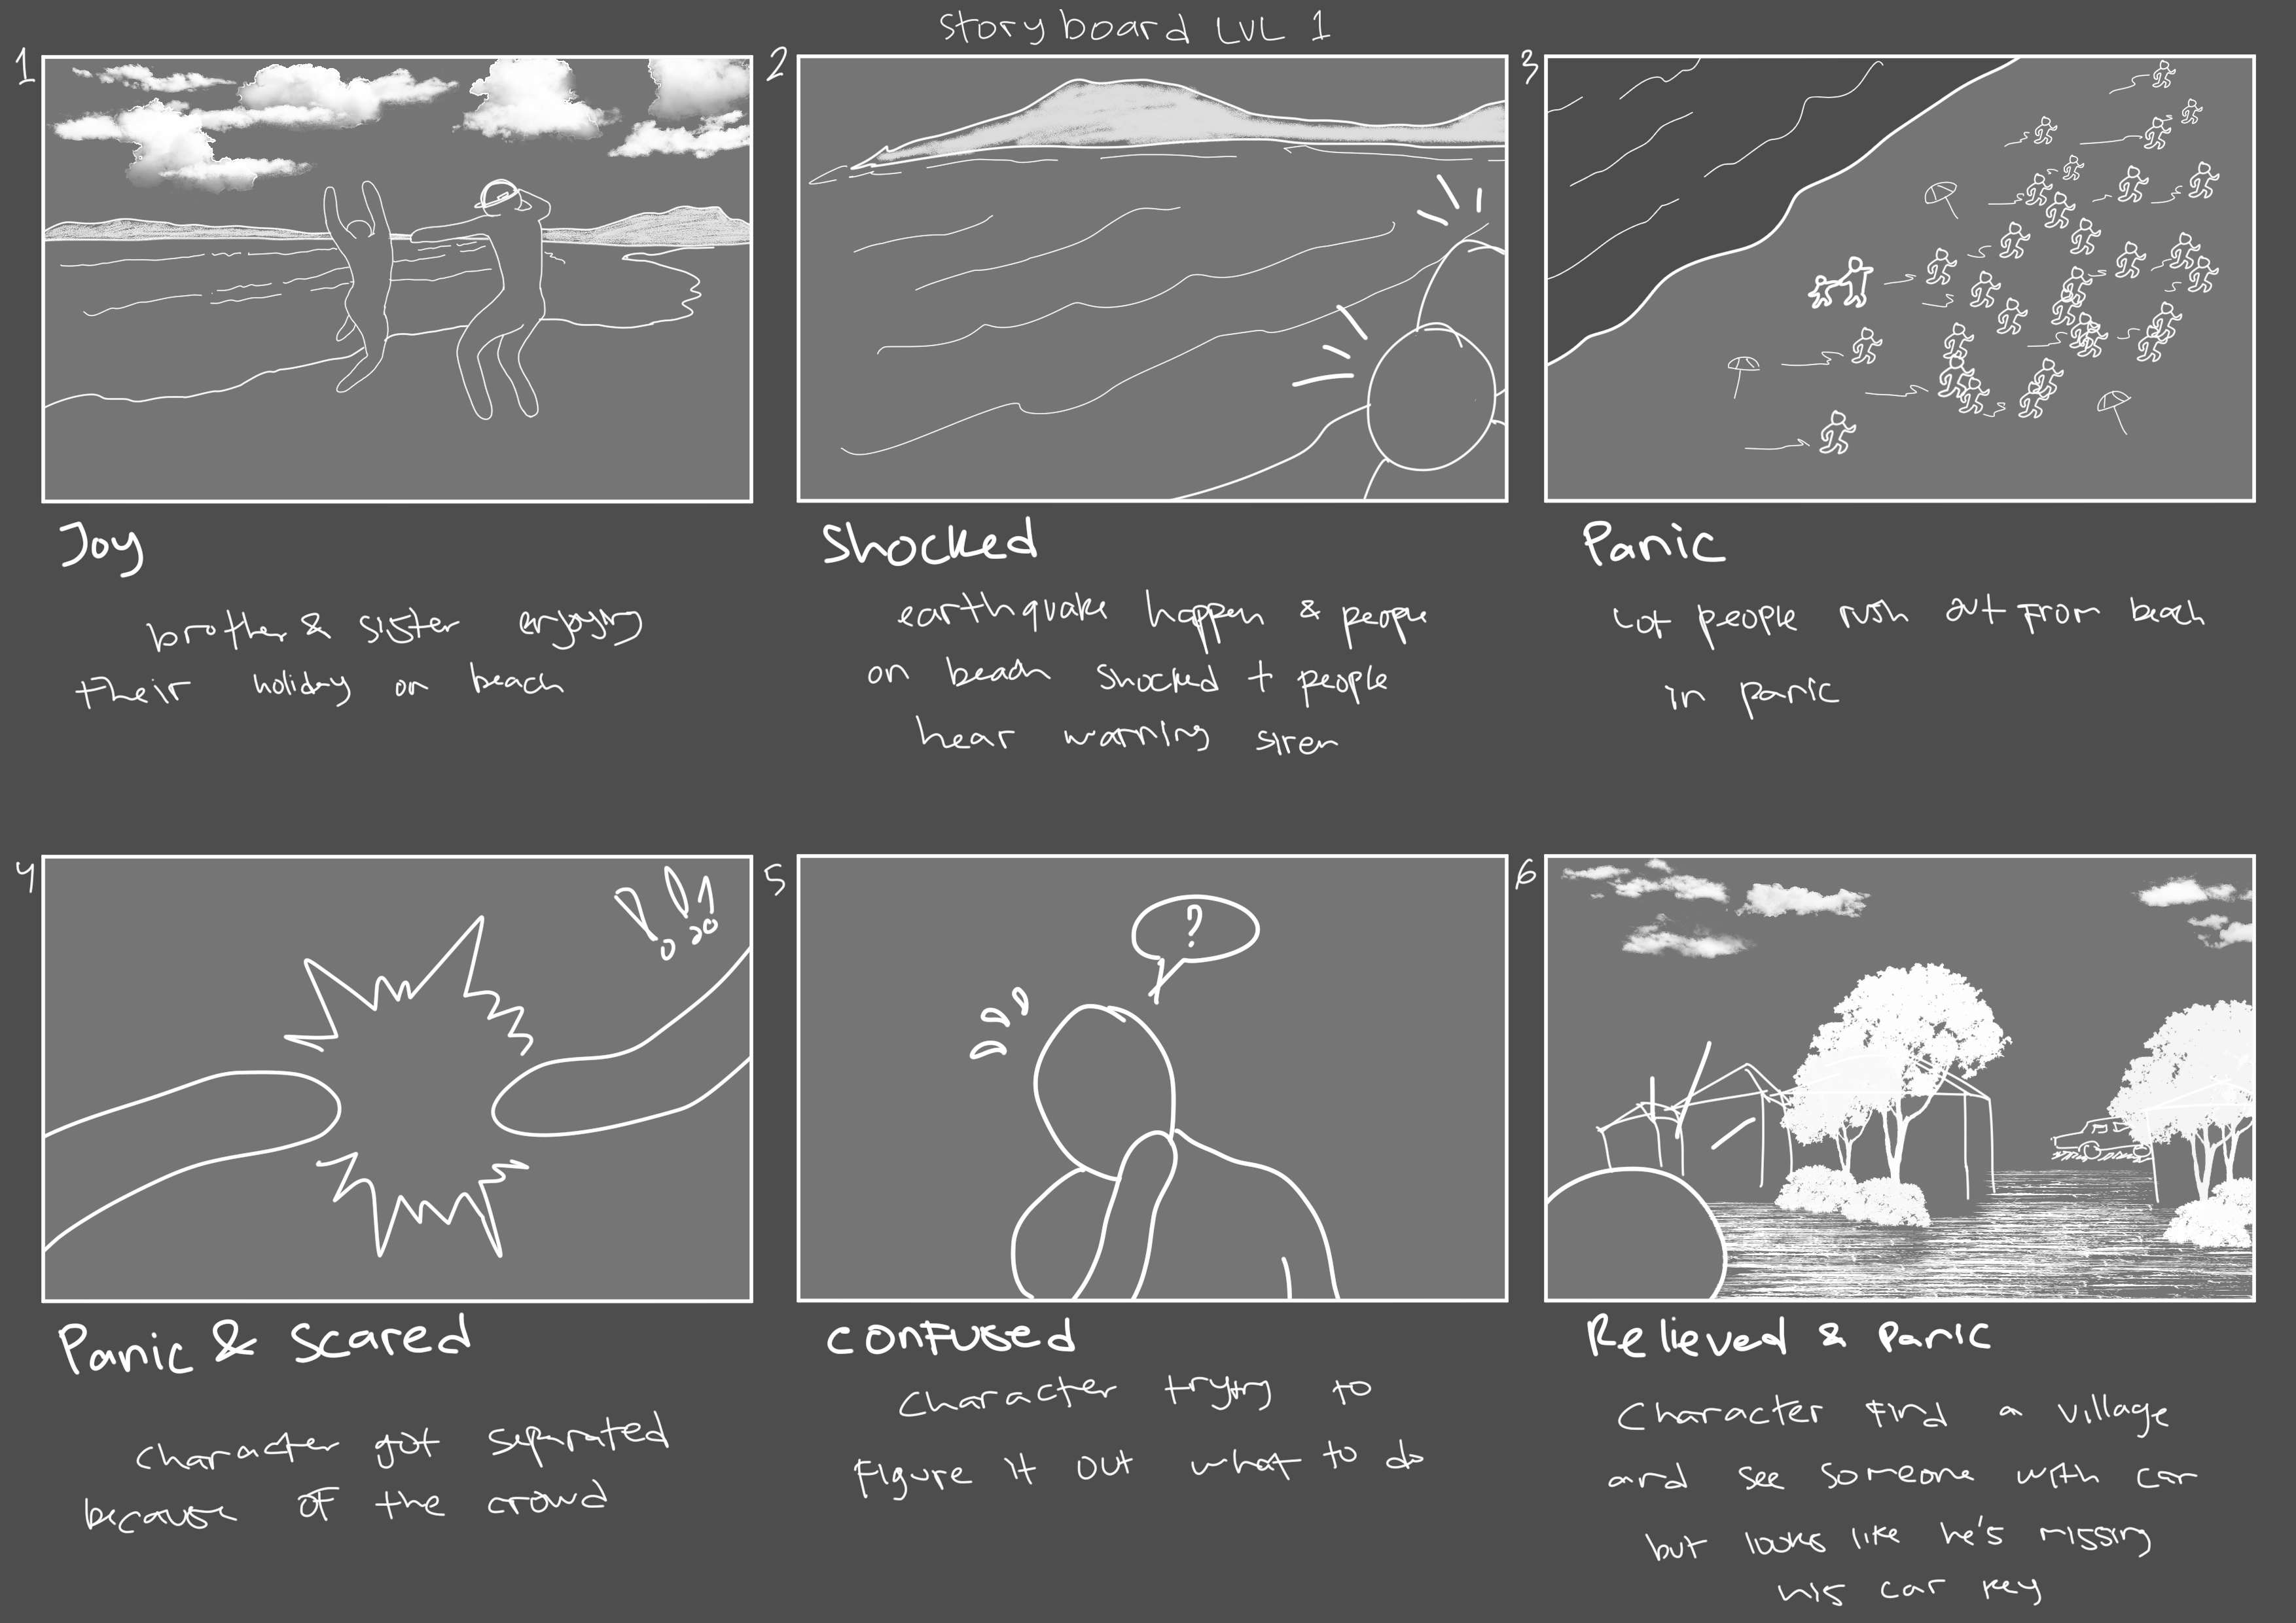 storyboard LVL 1
1
2
3
Joy
brother & sister enjoying
their holiday on beach
Shocked
earthquake happen & people
on beach shocked + people
hear warning siren
Panic
Lot people rush out from beach
in panic
4
!!!
5
?
6
Panic & Scared
character got separated
because of the crowd
confused
character trying to
Figure it out what to do
Relieved & Panic
Character find a village
and see someone with car
but looks like he's missing
his car key